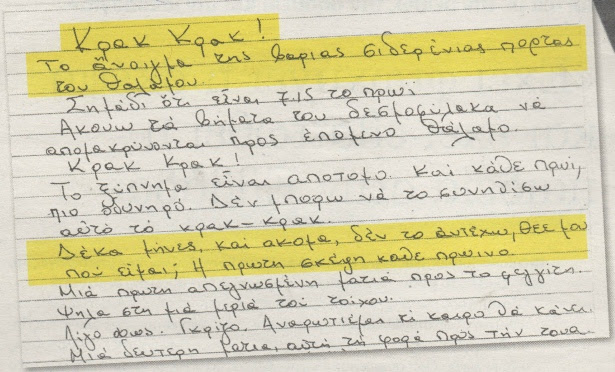 Κρακ Κρακ!
Το άνοιγμα της βαριας σιδερένιας πορτας
του θαλαμου.
Σημάδι ότι είναι 7.15 το πρωϊ
Ακουω τά βήματα του δεσμοφύλακα νά
απομακρύνονται προς έπομενο θάλαμο.
Κρακ Κρακ!
Το ξύπνημα είναι αποτομο. Και κάθε πρωί,
πιο οδυνηρό. Δέν μπορω νά το συνηθίσω
αυτό τό κρακ-κρακ.
Δέκα μήνες, και ακομα, δέν το άντέχω, Θεε μου
πού είμαι; Η πρωτη σκέψη κάθε πρωινο.
Μιά πρωτη απελπισμένη ματιά προς το φεγγίτη.
Ψηλα στη μιά μεριά του τοίχου.
Λίγο φως. Γκρίζο. Αναρωτιέμαι τί καιρο θά κάνει.
Μιά δευτερη ματια, αυτή τη φορά πρός τήν τουα-